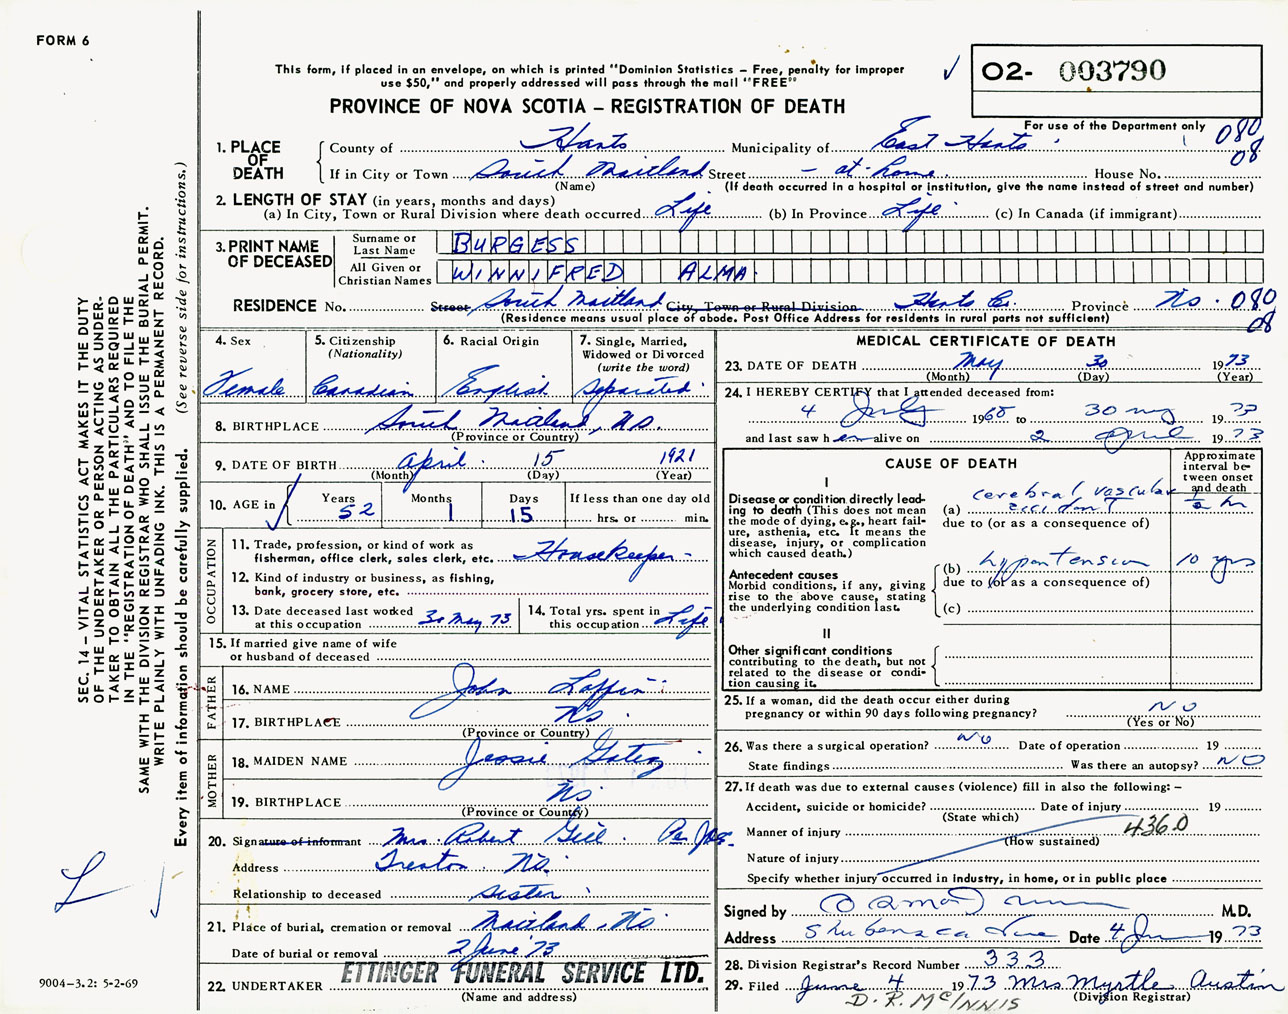 FORM 6
This form, if placed in an envelope, on which is printed "Dominion Statistics – Free, penalty for improper
use $50," and properly addressed will pass through the mail "FREE"
PROVINCE OF NOVA SCOTIA – REGISTRATION OF DEATH
O2- 003790
For use of the Department only 080
08
1. PLACE OF DEATH
County of Hants Municipality of East Hants
If in City or Town South Maitland Street – at home. House No.
(Name) (If death occurred in a hospital or institution, give the name instead of street and number)
2. LENGTH OF STAY (in years, months and days)
(a) In City, Town or Rural Division where death occurred Life (b) In Province Life (c) In Canada (if immigrant)
3. PRINT NAME OF DECEASED
Surname or Last Name BURGESS
All Given or Christian Names WINNIFRED ALMA
RESIDENCE No. Street South Maitland City, Town or Rural Division Hants Co. Province NS. 080
(Residence means usual place of abode. Post Office Address for residents in rural parts not sufficient) 08
4. Sex Female
5. Citizenship (Nationality) Canadian
6. Racial Origin English
7. Single, Married, Widowed or Divorced (write the word) Separated
8. BIRTHPLACE South Maitland, NS.
(Province or Country)
9. DATE OF BIRTH April 15 1921
(Month) (Day) (Year)
10. AGE in Years 52 Months 1 Days 15 If less than one day old
hrs. or min.
OCCUPATION
11. Trade, profession, or kind of work as
fisherman, office clerk, sales clerk, etc. Housekeeper –
12. Kind of industry or business, as fishing,
bank, grocery store, etc.
13. Date deceased last worked
at this occupation 30 May 73
14. Total yrs. spent in
this occupation Life
15. If married give name of wife
or husband of deceased
FATHER
16. NAME John Laffin
17. BIRTHPLACE NS
(Province or Country)
MOTHER
18. MAIDEN NAME Jessie
19. BIRTHPLACE NS
(Province or Country)
20. Signature of informant Mrs. Robert Gill. Per
Address Trenton. NS.
Relationship to deceased sister
21. Place of burial, cremation or removal Maitland, NS
Date of burial or removal 2 June '73
22. UNDERTAKER ETTINGER FUNERAL SERVICE LTD.
(Name and address)
MEDICAL CERTIFICATE OF DEATH
23. DATE OF DEATH May 30 1973
(Month) (Day) (Year)
24. I HEREBY CERTIFY that I attended deceased from:
4 July 1968 to 30 my 1973
and last saw her alive on 2 April 1973
CAUSE OF DEATH
Approximate
interval be-
tween onset
and death
I
Disease or condition directly lead-
ing to death (This does not mean
the mode of dying, e.g., heart fail-
ure, asthenia, etc. It means the
disease, injury, or complication
which caused death.)
(a) cerebral vascular accident ½ hr
due to (or as a consequence of)
Antecedent causes
Morbid conditions, if any, giving
rise to the above cause, stating
the underlying condition last.
(b) hypertension 10 yrs
due to (or as a consequence of)
(c)
II
Other significant conditions
contributing to the death, but not
related to the disease or condi-
tion causing it.
25. If a woman, did the death occur either during
pregnancy or within 90 days following pregnancy? NO
(Yes or No)
26. Was there a surgical operation? NO Date of operation 19
State findings Was there an autopsy? NO
27. If death was due to external causes (violence) fill in also the following: –
Accident, suicide or homicide? Date of injury 19
(State which)
Manner of injury 4360
(How sustained)
Nature of injury
Specify whether injury occurred in industry, in home, or in public place
Signed by M.D.
Address Shubenacadie Date 4 Jun 1973
28. Division Registrar's Record Number 333
29. Filed June 4 1973 Mrs Myrtle Austin
(Division Registrar)
D. R. McINNIS
SEC. 14 – VITAL STATISTICS ACT MAKES IT THE DUTY
OF THE UNDERTAKER OR PERSON ACTING AS UNDER-
TAKER TO OBTAIN ALL THE PARTICULARS REQUIRED
IN THE "REGISTRATION OF DEATH" AND TO FILE THE
SAME WITH THE DIVISION REGISTRAR WHO SHALL ISSUE THE BURIAL PERMIT.
WRITE PLAINLY WITH UNFADING INK. THIS IS A PERMANENT RECORD.
Every item of information should be carefully supplied. (See reverse side for instructions.)
9004-3.2: 5-2-69